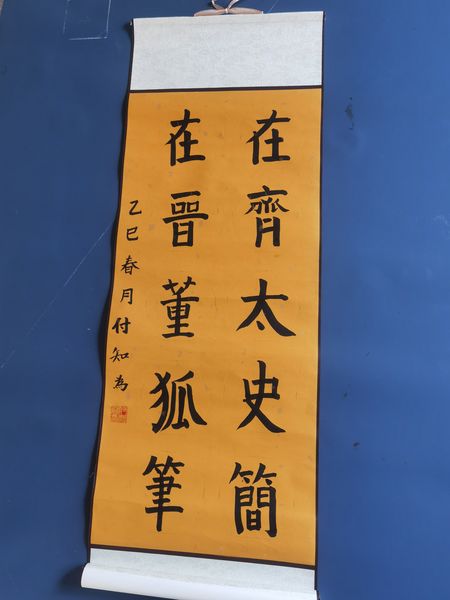 在齊太史簡
在晉董狐筆
乙巳春月付知為